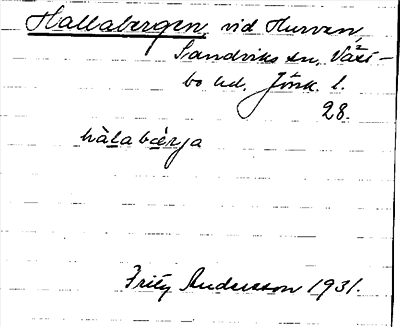 Hallabergen, vid Hurven,
Sandviks sn, Väst-
bo hd. Jönk. l.
28.
hàlabærja
Fritz Andersson 1931.